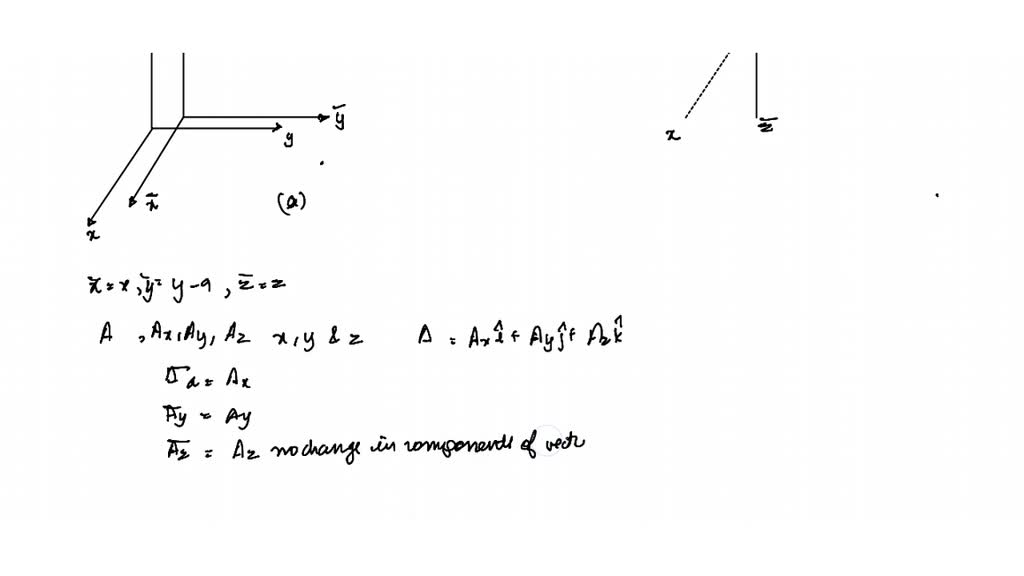 ȳ
y
x
z̄
x̄
(a)
x
x̄ = x, ȳ = y - a, z̄ = z
A , Ax, Ay, Az x, y & z A = Ax î + Ay ĵ + Az k̂
Āx = Ax
Āy = Ay
Āz = Az no change in components of vectr